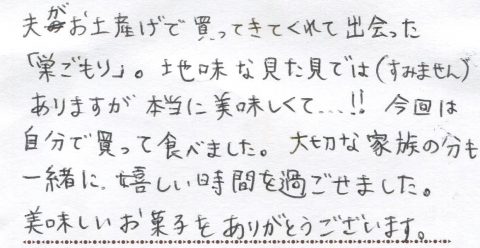 夫がお土産げで買ってきてくれて出会った
「巣ごもり」。地味な見た見では(すみません)
ありますが本当に美味しくて...!! 今回は
自分で買って食べました。大切な家族の分も
一緒に、嬉しい時間を過ごせました。
美味しいお菓子をありがとうございます。